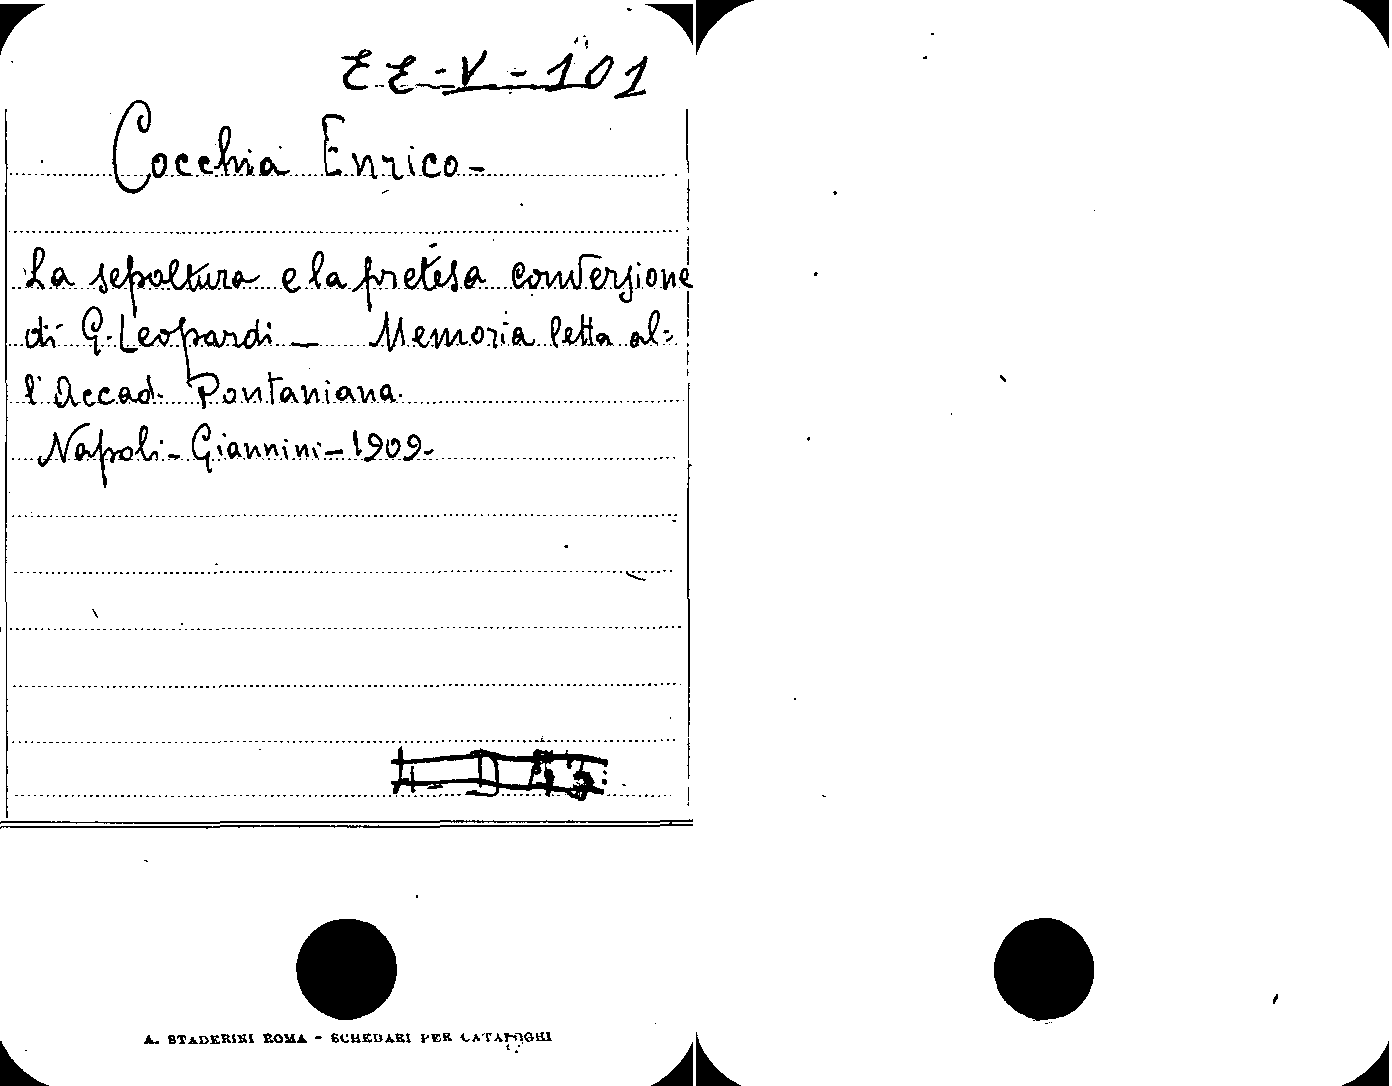 EE-V-101
Cocchia Enrico-
La sepoltura e la pretesa conversione
di G. Leopardi - Memoria letta al=
l'Accad. Pontaniana.
Napoli - Giannini - 1909-
A. STADERINI ROMA - SCHEDARI PER CATALOGHI